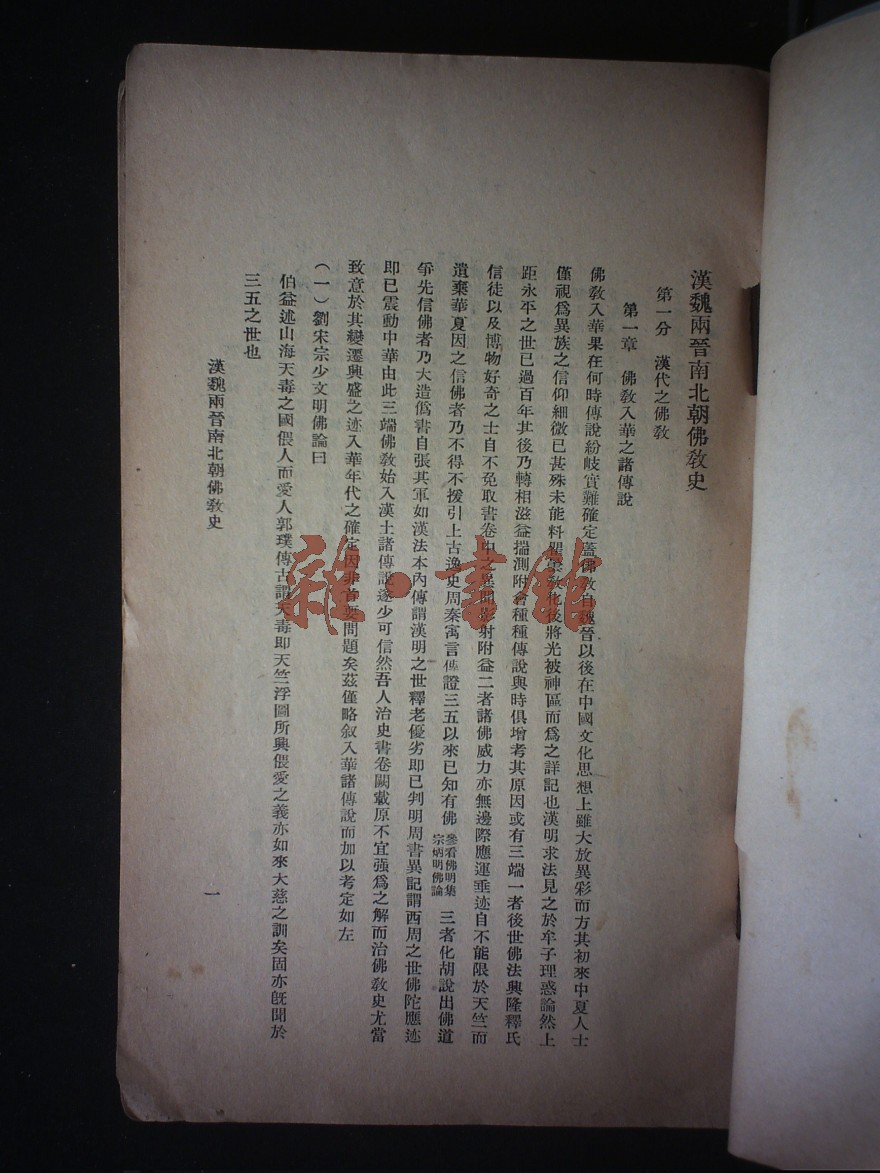 漢魏兩晉南北朝佛敎史
第一分　漢代之佛敎
第一章　佛敎入華之諸傳說
佛敎入華果在何時傳說紛岐實難確定蓋佛敎自魏晉以後在中國文化思想上雖大放異彩而方其初來中夏人士
僅視爲異族之信仰細微已甚殊未能料覺敎化後將光被神區而爲之詳記也漢明求法見之於牟子理惑論然上
距永平之世已過百年其後乃轉相滋益揣測附會種種傳說與時俱增考其原因或有三端一者後世佛法興隆釋氏
信徒以及博物好奇之士自不免取書卷中之異聞影射附益二者諸佛威力亦無邊際應運垂迹自不能限於天竺而
遺棄華夏因之信佛者乃不得不援引上古逸史周秦寓言傅證三五以來已知有佛參看佛明集宗炳明佛論三者化胡說出佛道
爭先信佛者乃大造僞書自張其軍如漢法本內傳謂漢明之世釋老優劣即已判明周書異記謂西周之世佛陀應迹
即已震動中華由此三端佛敎始入漢土諸傳說遂少可信然吾人治史書卷闕載原不宜強爲之解而治佛敎史尤當
致意於其變遷興盛之迹入華年代之確定因非首要問題矣茲僅略叙入華諸傳說而加以考定如左
（一）劉宋宗少文明佛論曰
伯益述山海天毒之國偎人而愛人郭璞傳古謂天毒即天竺浮圖所興偎愛之義亦如來大慈之訓矣固亦旣聞於
三五之世也
漢魏兩晉南北朝佛敎史
一
雜·書館